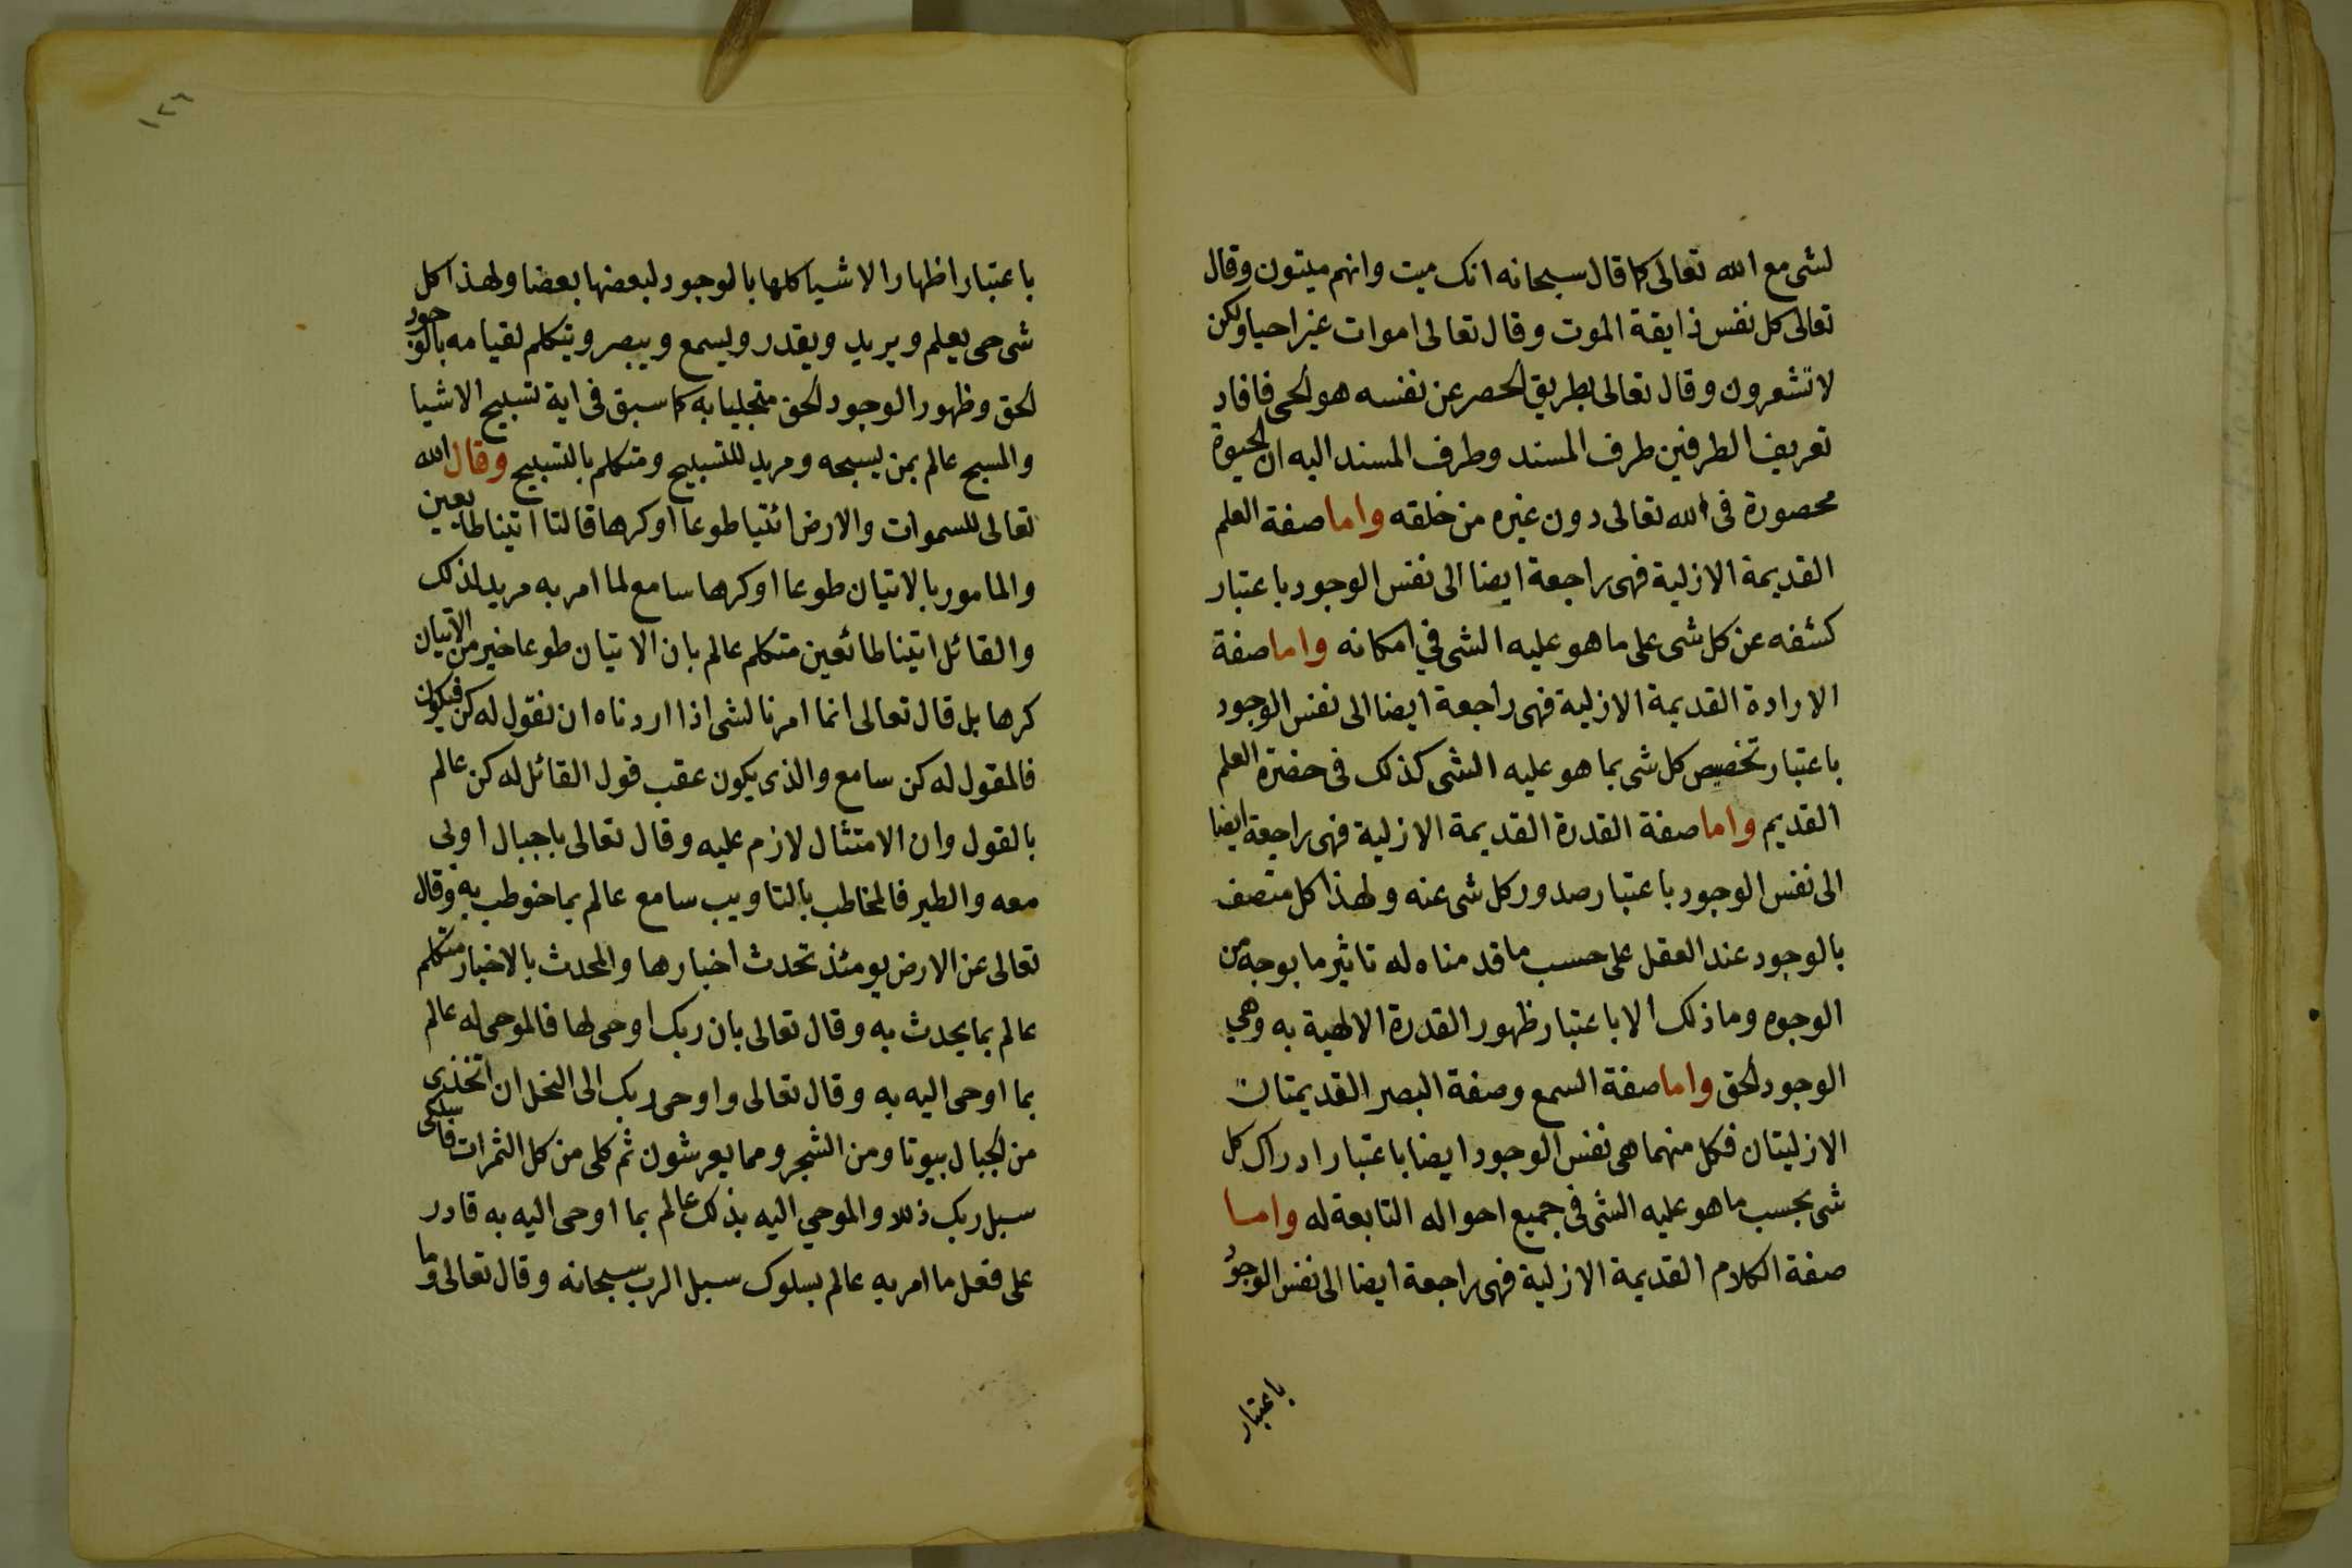 لشى مع الله تعالى كما قال سبحانه انك ميت وانهم ميتون وقال
تعالى كل نفس ذايقة الموت وقال تعالى اموات غير احيا ولكن
لا تشعرون وقال تعالى بطريق الحصر عن نفسه هو الحى فافاد
تعريف الطرفين طرف المسند وطرف المسند اليه ان الحيوة
محصورة فى الله تعالى دون غيره من خلقه واما صفة العلم
القديمة الازلية فهى راجعة ايضا الى نفس الوجود باعتبار
كشفه عن كل شى على ما هو عليه الشى في امكانه واما صفة
الارادة القديمة الازلية فهى راجعة ايضا الى نفس الوجود
باعتبار تخصيص كل شى بما هو عليه الشى كذلك فى حضرة العلم
القديم واما صفة القدرة القديمة الازلية فهى راجعة ايضا
الى نفس الوجود باعتبار صدور كل شى عنه ولهذا كل متصف
بالوجود عند العقل على حسب ما قدمناه له تاثير ما بوجه من
الوجوه وما ذلك الا باعتبار ظهور القدرة الالهية به وهي
الوجود الحق واما صفة السمع وصفة البصر القديمتان
الازليتان فكل منهما هى نفس الوجود ايضا باعتبار ادراك كل
شى بحسب ما هو عليه الشى فى جميع احواله التابعة له واما
صفة الكلام القديمة الازلية فهى راجعة ايضا الى نفس الوجود
باعتبار
١٢٦
باعتبار اظهار الاشيا كلها بالوجود لبعضها بعضا ولهذا كل
شى حى يعلم ويريد ويقدر ويسمع ويبصر ويتكلم لقيامه بالوجود
الحق وظهور الوجود الحق متجليا به كما سبق فى اية تسبيح الاشيا
والمسبح عالم بمن يسبحه ومريد للتسبيح ومتكلم بالتسبيح وقال الله
تعالى للسموات والارض ائتيا طوعا اوكرها قالتا اتينا طايعين
والمامور بالاتيان طوعا اوكرها سامع لما امر به مريد لذلك
والقائل اتينا طائعين متكلم عالم بان الاتيان طوعا خير من الاتيان
كرها بل قال تعالى انما امرنا لشى اذا اردناه ان نقول له كن فيكون
فالمقول له كن سامع والذى يكون عقب قول القائل له كن عالم
بالقول وان الامتثال لازم عليه وقال تعالى ياجبال اوبى
معه والطير فالمخاطب بالتاويب سامع عالم بما خوطب به وقال
تعالى عن الارض يومئذ تحدث اخبارها والمحدث بالاخبار متكلم
عالم بما يحدث به وقال تعالى بان ربك اوحى لها فالموحى له عالم
بما اوحى اليه به وقال تعالى واوحى ربك الى النحل ان اتخذى
من الجبال بيوتا ومن الشجر ومما يعرشون ثم كلى من كل الثمرات فاسلكى
سبل ربك ذللا والموحي اليه بذلك عالم بما اوحى اليه به قادر
على فعل ما امر به عالم بسلوك سبل الرب سبحانه وقال تعالى وما